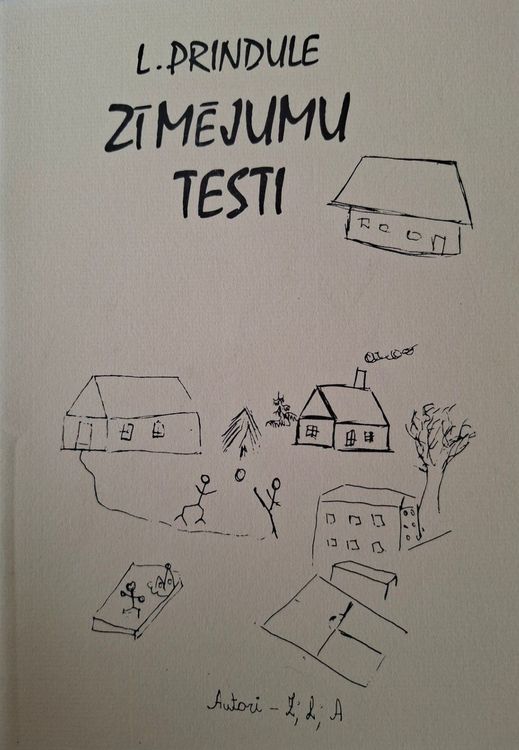 L. PRINDULE
ZĪMĒJUMU
TESTI
Autori - Z; L; A